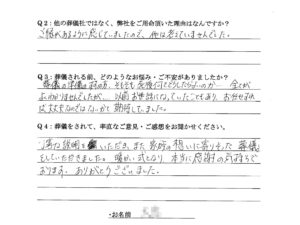 Q2：他の葬儀社ではなく、弊社をご用命頂いた理由はなんですか？
ご縁があるように感じていましたので、他は考えていませんでした。
Q3：葬儀される前、どのようなお悩み・ご不安がありましたか？
葬儀の準備の仕方、そもそも亡後何をどうしたらいいのか… 全てが
よくわかりませんでしたが、以前お世話になっていたこともあり、お任せすれば
大丈夫なのではないかと期待してました。
Q4：葬儀をされて、率直なご意見・ご感想をお聞かせください。
丁寧な説明をいただき、また家族の想いに寄りそった葬儀
をしていただきました。暖かい式となり、本当に感謝の気持ちで
おります。ありがとうございました。
・お名前